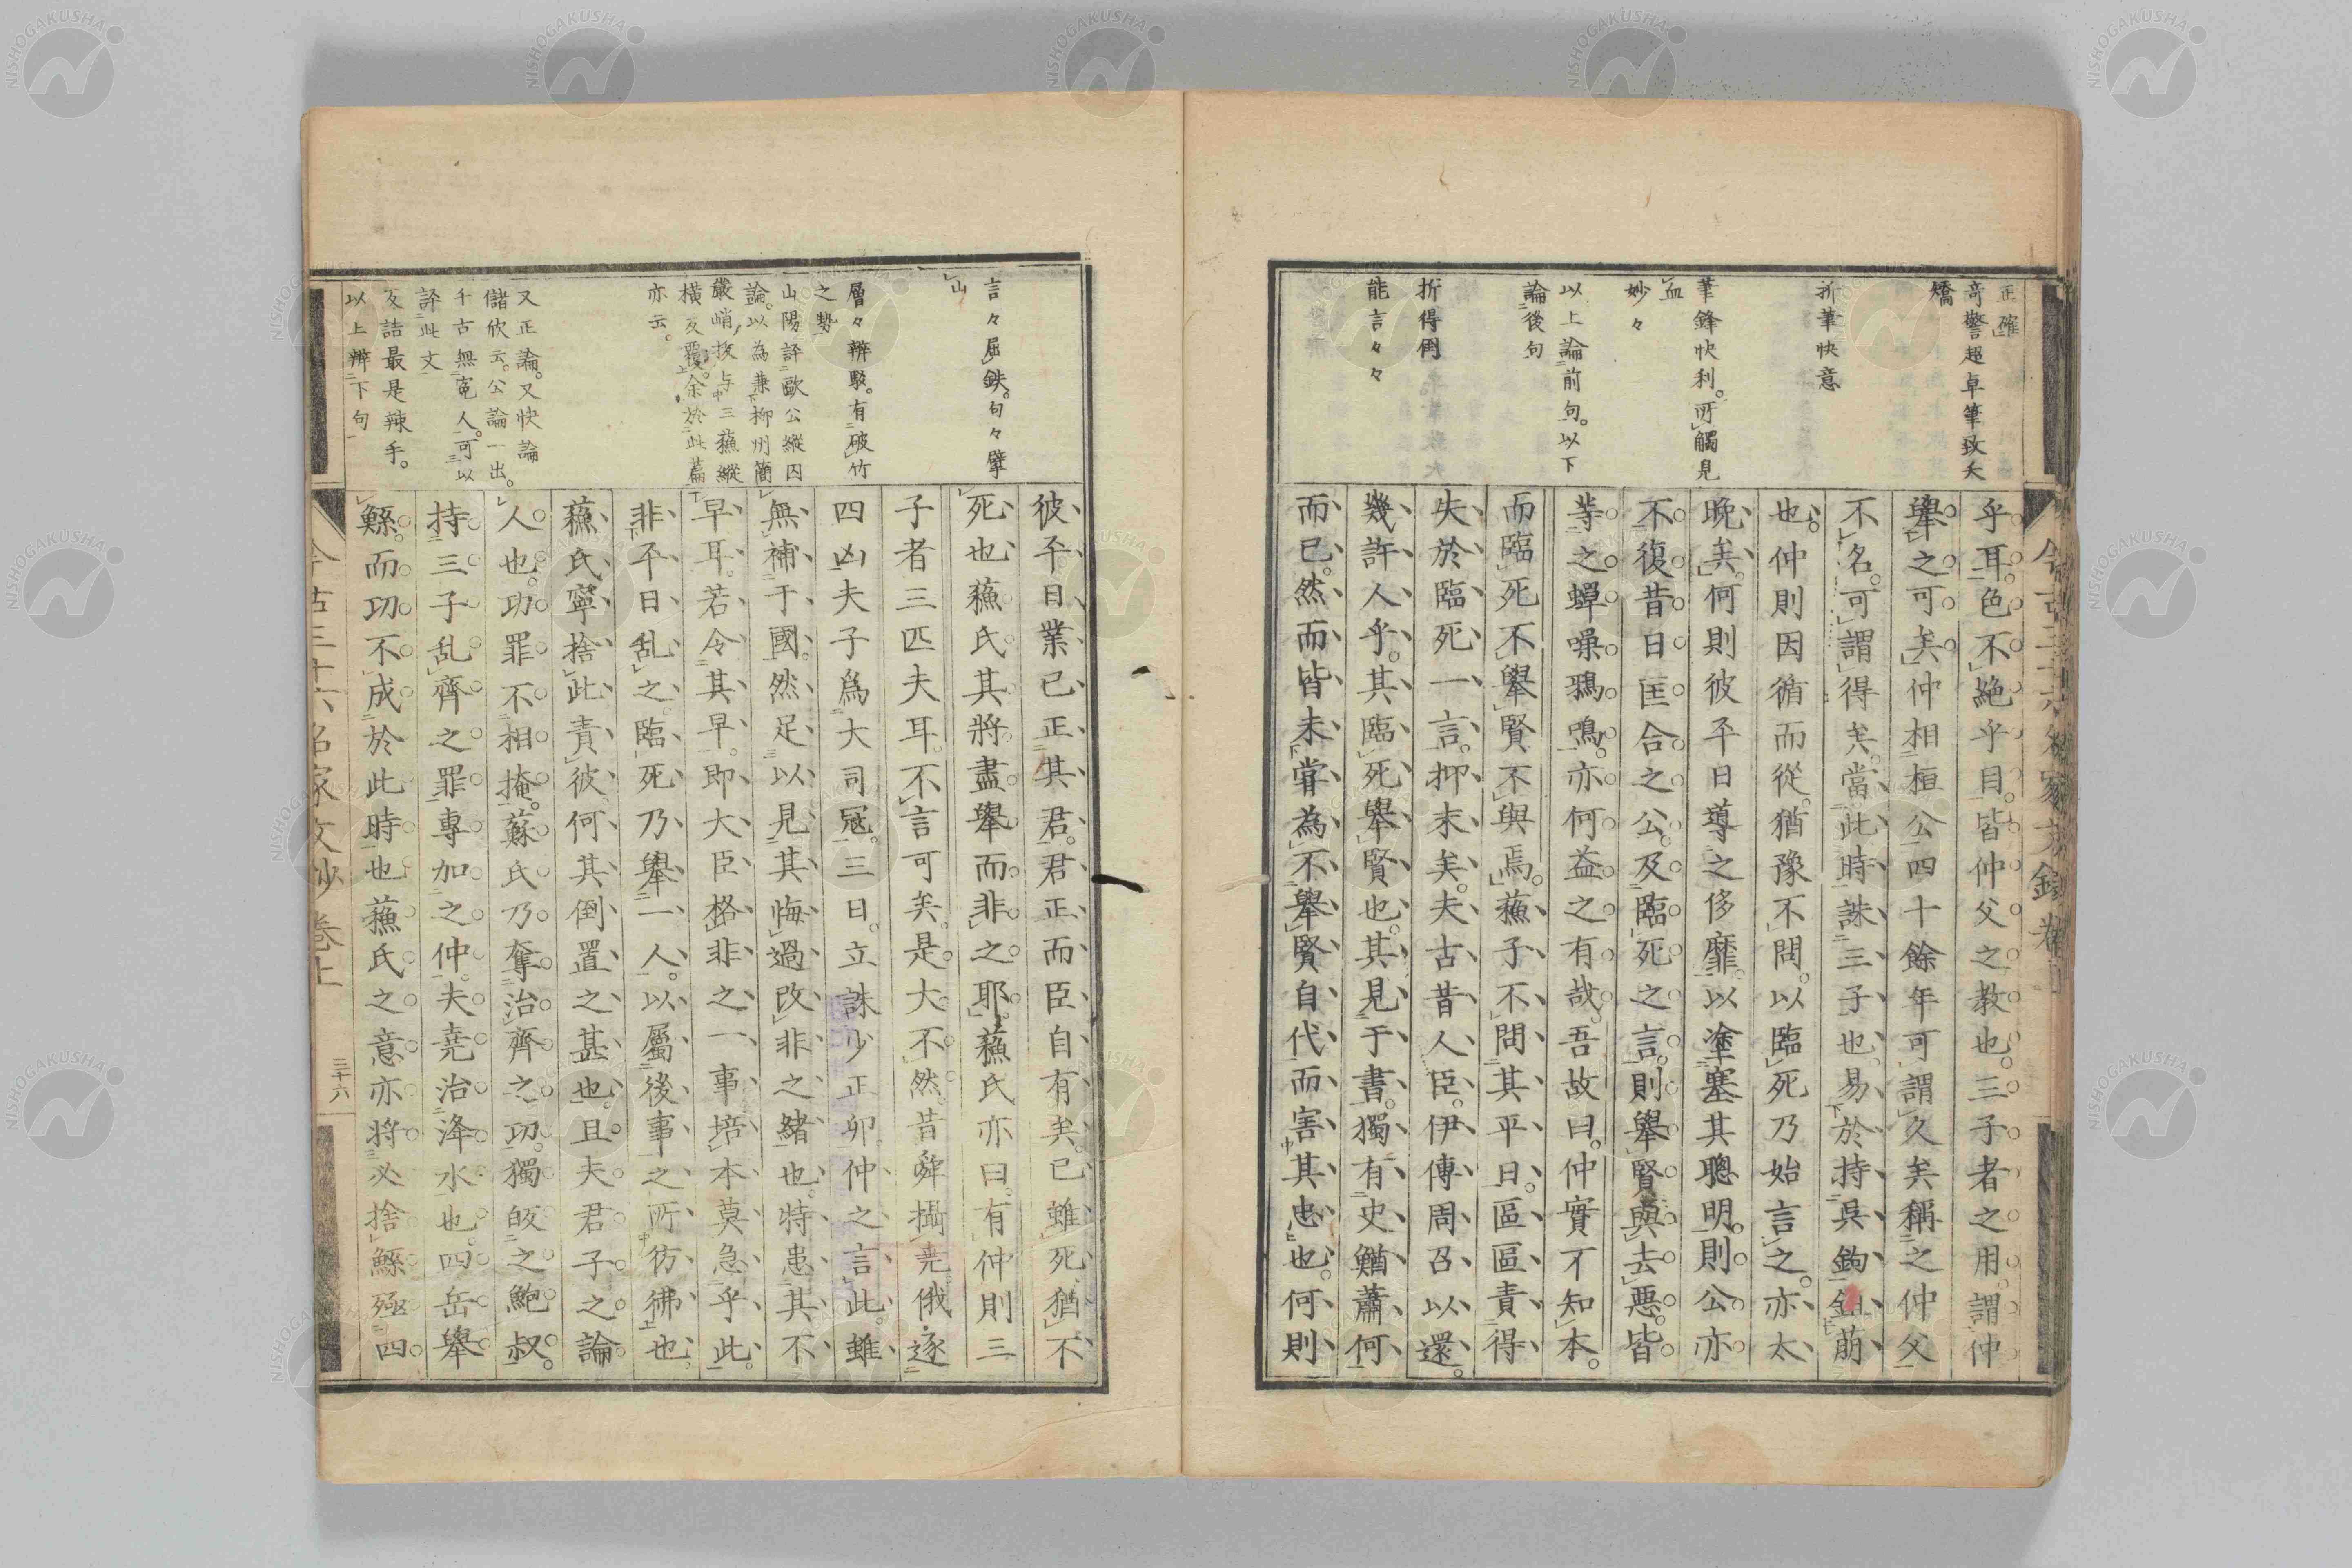 正確
奇警超卓筆致夭
矯
折筆快意
筆鋒快利。所觸見
血
妙々
以上論前句。以下
論後句
折得倒
能言々々
乎耳。色不絶乎目。皆仲父之教也。三子者之用。謂仲
擧之可矣。仲相桓公四十餘年。可謂久矣。稱之仲父
不名。可謂得矣。當此時。誅三子也。易於持呉鉤鉏萠
也。仲則因循而從。猶豫不問。以臨死乃始言之。亦太
晩矣。何則彼平日導之侈靡。以塗塞其聰明。則公亦
不復昔日匡合之公。及臨死之言。則擧賢與去惡。皆
等之蟬噪鴉鳴。亦何益之有哉。吾故曰。仲實不知本。
而臨死不擧賢不與焉。蘓子不問其平日。區區責得
失於臨死一言。抑末矣。夫古昔人臣。伊傅周召以還。
幾許人乎。其臨死擧賢也。其見于書。獨有史鰌蕭何
而已。然而皆未甞為不擧賢自代而害其忠也。何則
今古三十六名家文鈔卷上
言々屈鉄。句々擘
山
層々辨駁。有破竹
之勢
山陽評歐公縱囚
論。以為兼柳州簡
嚴峭拔与三蘓縱
橫反覆。余於此篇
亦云。
又正論。又快論
儲欣云。公論一出。
千古無寃人。可以
評此文
反詰最是辣手。
以上辨下句
彼平日業已正其君。君正而臣自有矣。已雖死猶不
死也。蘓氏其將盡擧而非之耶。蘓氏亦曰。有仲則三
子者三匹夫耳。不言可矣。是大不然。昔舜攝堯俄逐
四凶。夫子爲大司冦。三日。立誅少正卯。仲之言此。雖
無補于國。然足以見其悔過改非之緒也。特患其不
早耳。若令其早。即大臣格非之一事。培本莫急乎此。
非平日乱之。臨死乃擧一人。以屬後事之所彷彿也。
蘓氏寧捨此責彼。何其倒置之甚也。且夫君子之論
人也。功罪不相掩。蘇氏乃奪治齊之功。獨皈之鮑叔。
持三子乱齊之罪。專加之仲。夫堯治洚水也。四岳擧
鯀。而功不成於此時也。蘓氏之意亦將必捨鯀殛四
今古三十六名家文鈔卷上
三十六